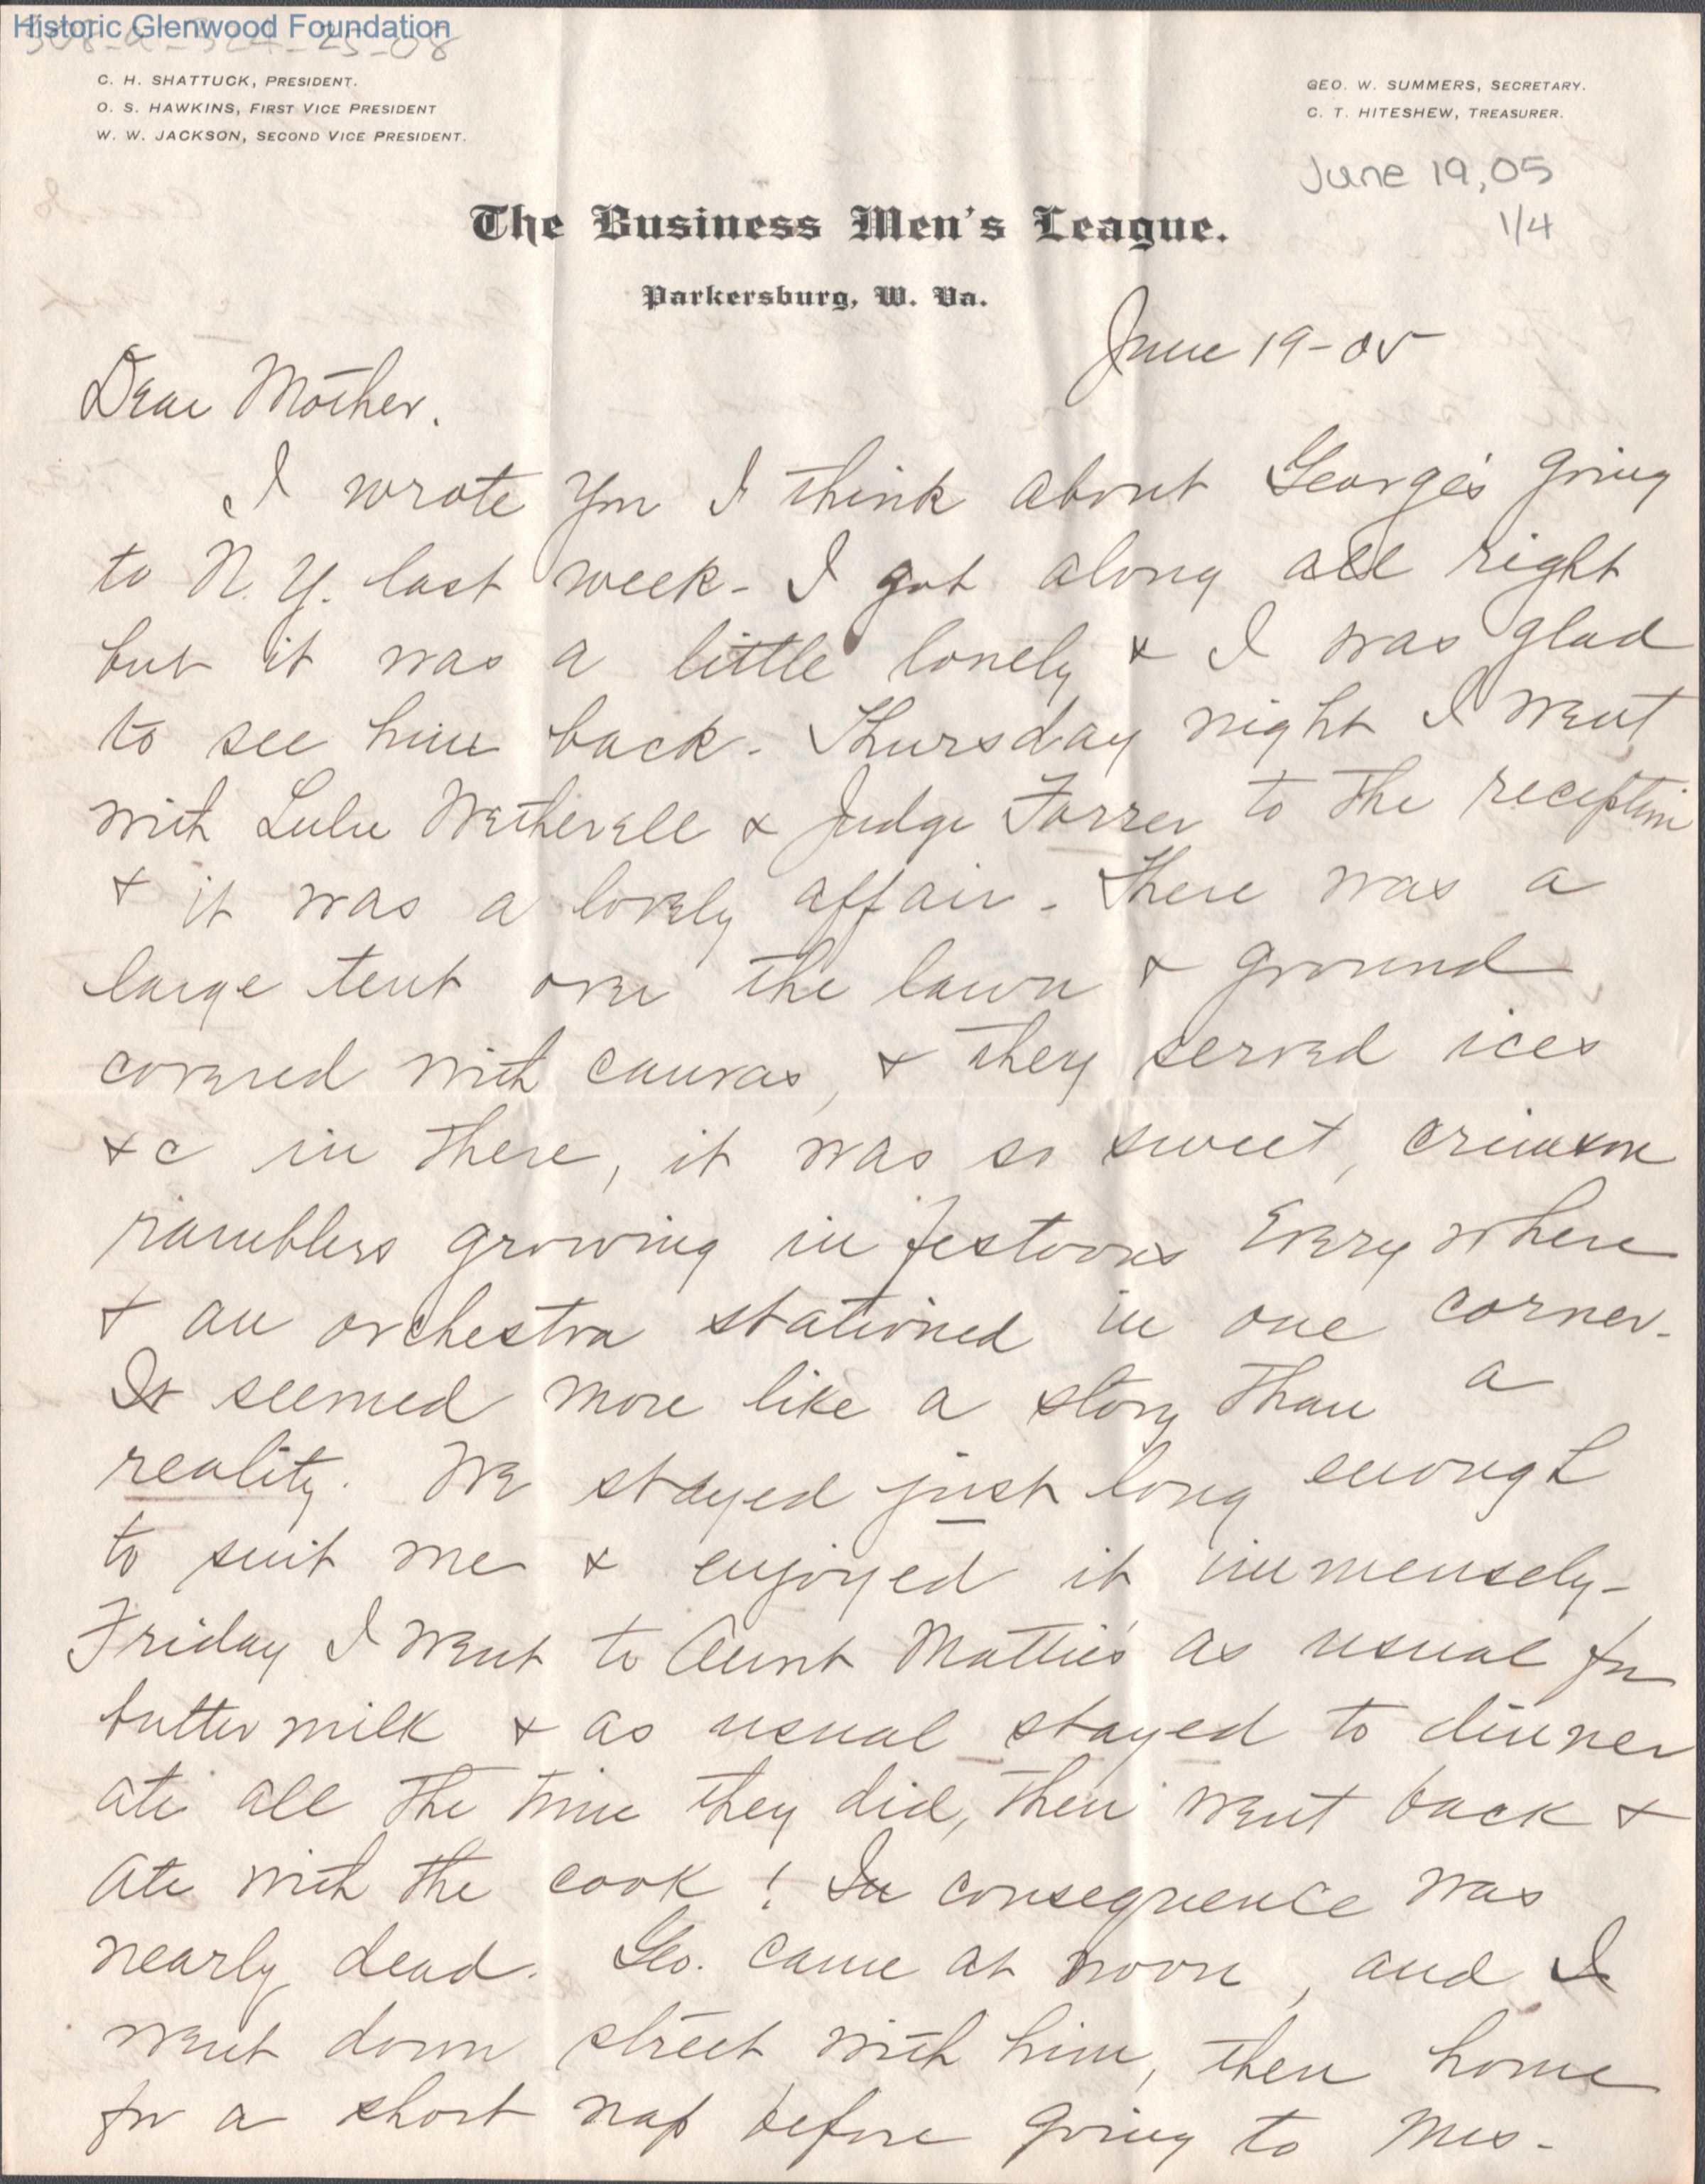 Historic Glenwood Foundation
C. H. SHATTUCK, PRESIDENT.
O. S. HAWKINS, FIRST VICE PRESIDENT
W. W. JACKSON, SECOND VICE PRESIDENT.
GEO. W. SUMMERS, SECRETARY.
C. T. HITESHEW, TREASURER.
June 19, 05
1/4
The Business Men's League.
Parkersburg, W. Va.
June 19-05
Dear Mother.
I wrote you I think about George's going
to N. Y. last week - I got along all right
but it was a little lonely & I was glad
to see him back. Thursday night I went
with Lulu Wetherell & Judge Forrer to the reception
& it was a lovely affair - There was a
large tent over the lawn & ground
covered with canvas, & they served ices
&c in there, it was so sweet, crimson
ramblers growing in festoons Every where
& an orchestra stationed in one corner.
It seemed more like a story than a
reality. We stayed just long enough
to suit me & enjoyed it immensely -
Friday I went to Aunt Mattie's as usual for
butter milk & as usual stayed to dinner
ate all the time they did, then went back &
ate with the cook! In consequence was
nearly dead. Geo. came at noon, and I
went down street with him, then home
for a short nap before going to Mrs -